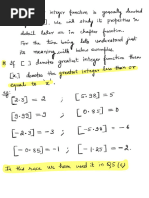 integer function is generally denoted
. We will study its properties in
detail later on in chapter function.
For the time being lets understand just
its meaning with below examples.
If [ ] denotes greatest integer function then
[x] denotes the greatest integer less than or
equal to 'x'.
[2.3] = 2 ; [5.98] = 5
[0.85] = 0
[-2.3] = -3 ; [-5.98] = -6
[-0.85] = -1 ; [-1.25] = -2.
In this race we have used it in Q5(v)